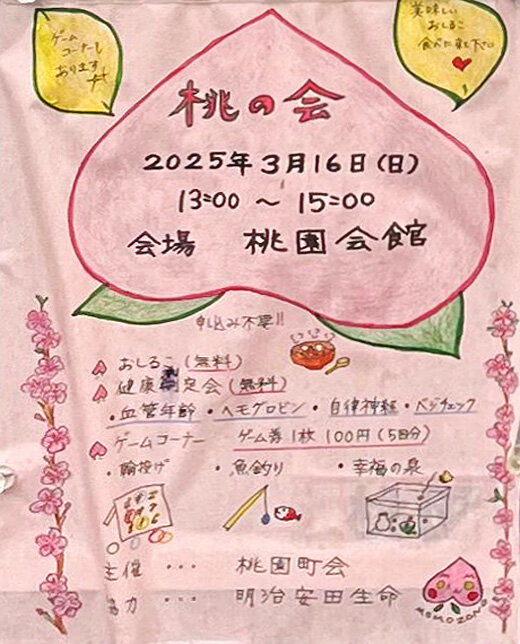 ゲーム
コーナーも
あります
美味しい
おしるこ
食べに来て下さい
桃の会
2025年3月16日(日)
13:00 ～ 15:00
会場 桃園会館
申し込み不要!!
おしるこ (無料)
健康測定会 (無料)
・血管年齢 ・ヘモグロビン ・自律神経 ・ベジチェック
ゲームコーナー ゲーム券1枚 100円 (5回分)
・輪投げ ・魚釣り ・幸福の泉
主催 ・・・ 桃園町会
協力 ・・・ 明治安田生命
MOMOZONO